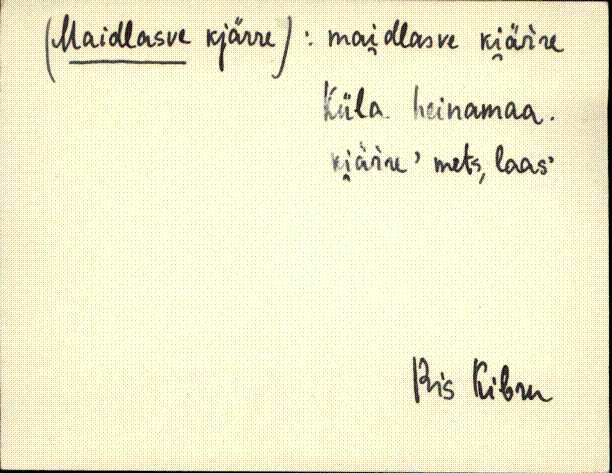 (Maidlasve kjärre) : mai̯dlasve ki̯äŕŕe
Küla heinamaa.
ki̯äŕŕe ' mets, laas'
Pris Kibru